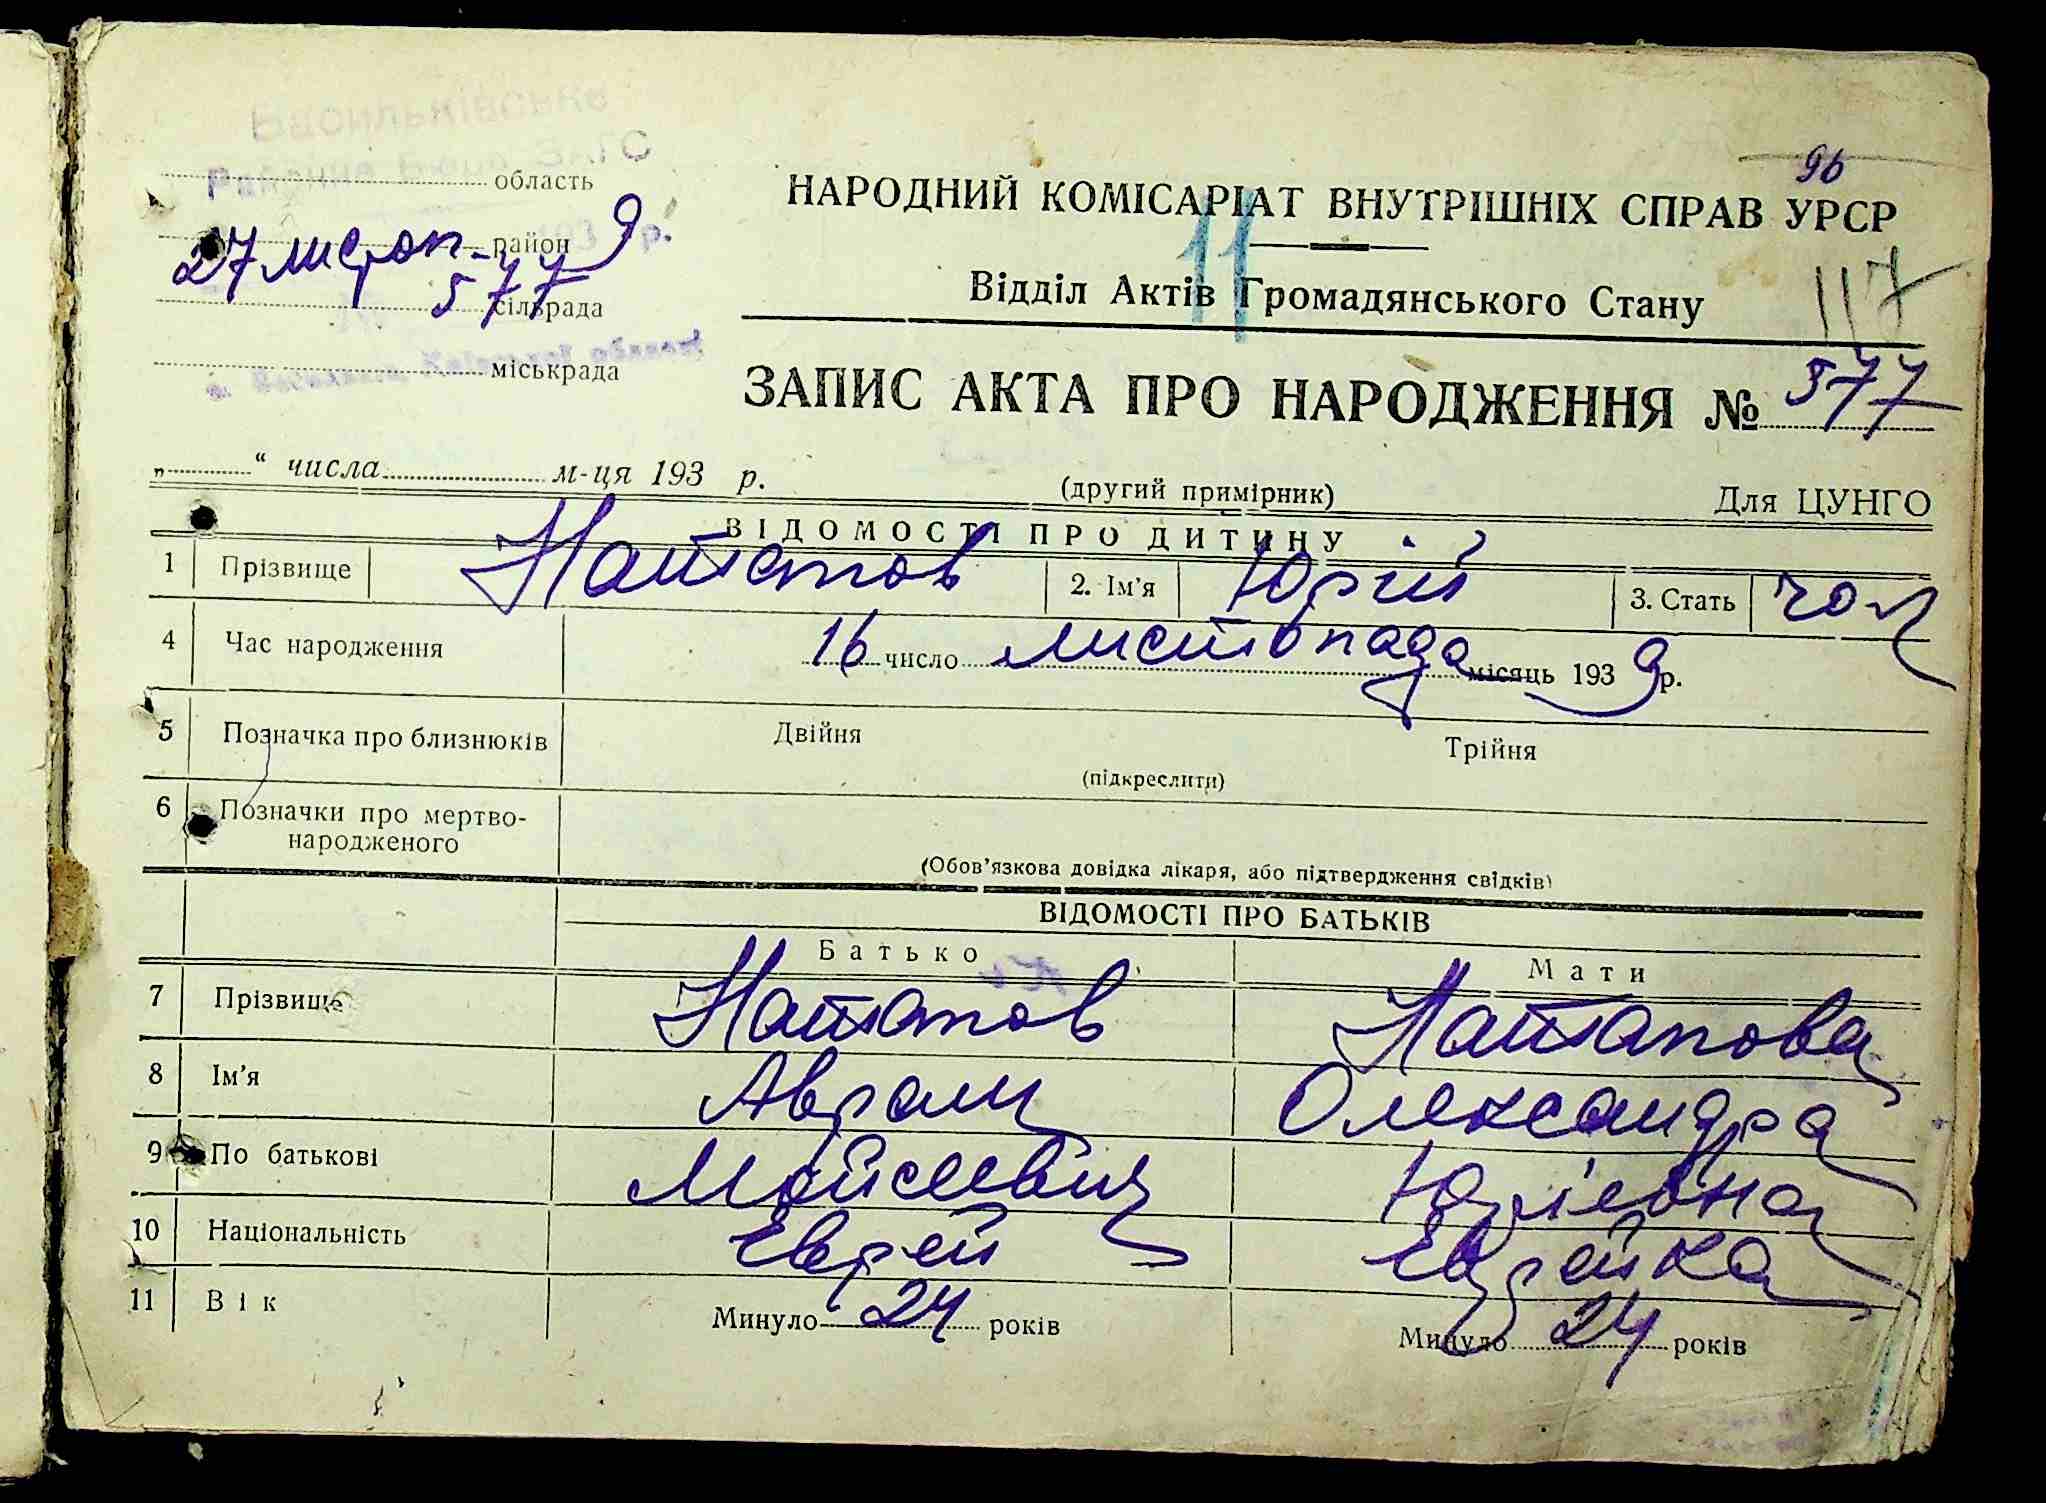 Васильківське
Районне Бюро ЗАГС
область
27 листоп. 1939 р.
район
577
сільрада
м. Васильків, Київської області
міськрада
96
НАРОДНИЙ КОМІСАРІАТ ВНУТРІШНІХ СПРАВ УРСР
11
Відділ Актів Громадянського Стану
117
ЗАПИС АКТА ПРО НАРОДЖЕННЯ № 577
„ “ числа м-ця 193 р.
(другий примірник)
Для ЦУНГО
ВІДОМОСТІ ПРО ДИТИНУ
1 Прізвище Наттапов 2. Ім’я Юрій 3. Стать чол
4 Час народження 16 число листопада місяць 1939 р.
5 Позначка про близнюків Двійня Трійня
(підкреслити)
6 Позначки про мертво-
народженого
(Обов’язкова довідка лікаря, або підтвердження свідків)
ВІДОМОСТІ ПРО БАТЬКІВ
Батько Мати
7 Прізвище Наттапов Наттапова
8 Ім’я Аврам Олександра
9 По батькові Мойсеевич Юлієвна
10 Національність Еврей Еврейка
11 Вік Минуло 24 років Минуло 24 років